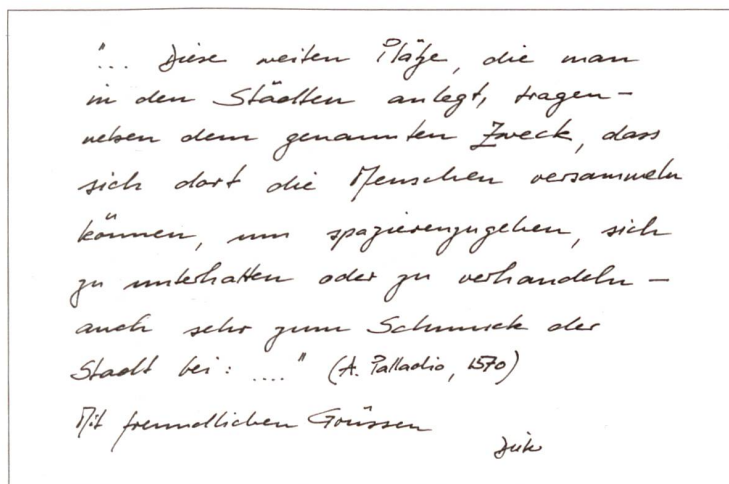 "... Diese weiten Plätze, die man
in den Städten anlegt, tragen -
neben dem genannten Zweck, dass
sich dort die Menschen versammeln
können, um spazierenzugehen, sich
zu unterhalten oder zu verhandeln -
auch sehr zum Schmuck der
Stadt bei: ...." (A. Palladio, 1570)
Mit freundlichen Grüssen